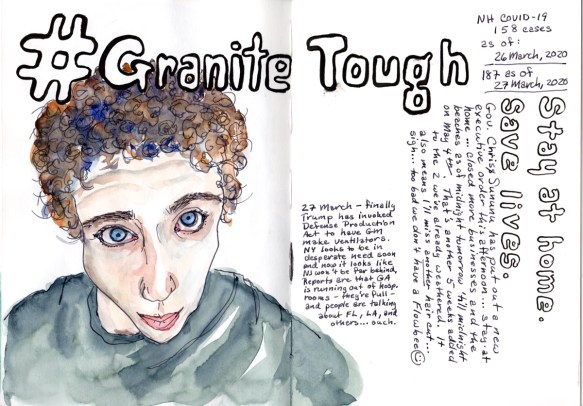 #Granite Tough
NH COVID-19
158 cases
as of:
26 March, 2020
187 as of
27 March, 2020
Stay at home.
save lives.
Gov. Chriss Sununu has put out a new
executive order this afternoon... stay at
home... closed more businesses and the
beaches as of midnight tomorrow 'til midnight
on May 4th. That's another 5 weeks added
to the 2 we've already weathered. It
also means I'll miss another hair cut...
sigh... too bad we don't have a Flowbee
27 March - finally
Trump has invoked
Defense Production
Act to have GM
make ventilators.
NY looks to be in
desperate need soon
and now it looks like
NJ won't be far behind,
Reports are that GA
is running out of hosp.
rooms - they're full -
and people are talking
about FL, LA, and
others... ouch.